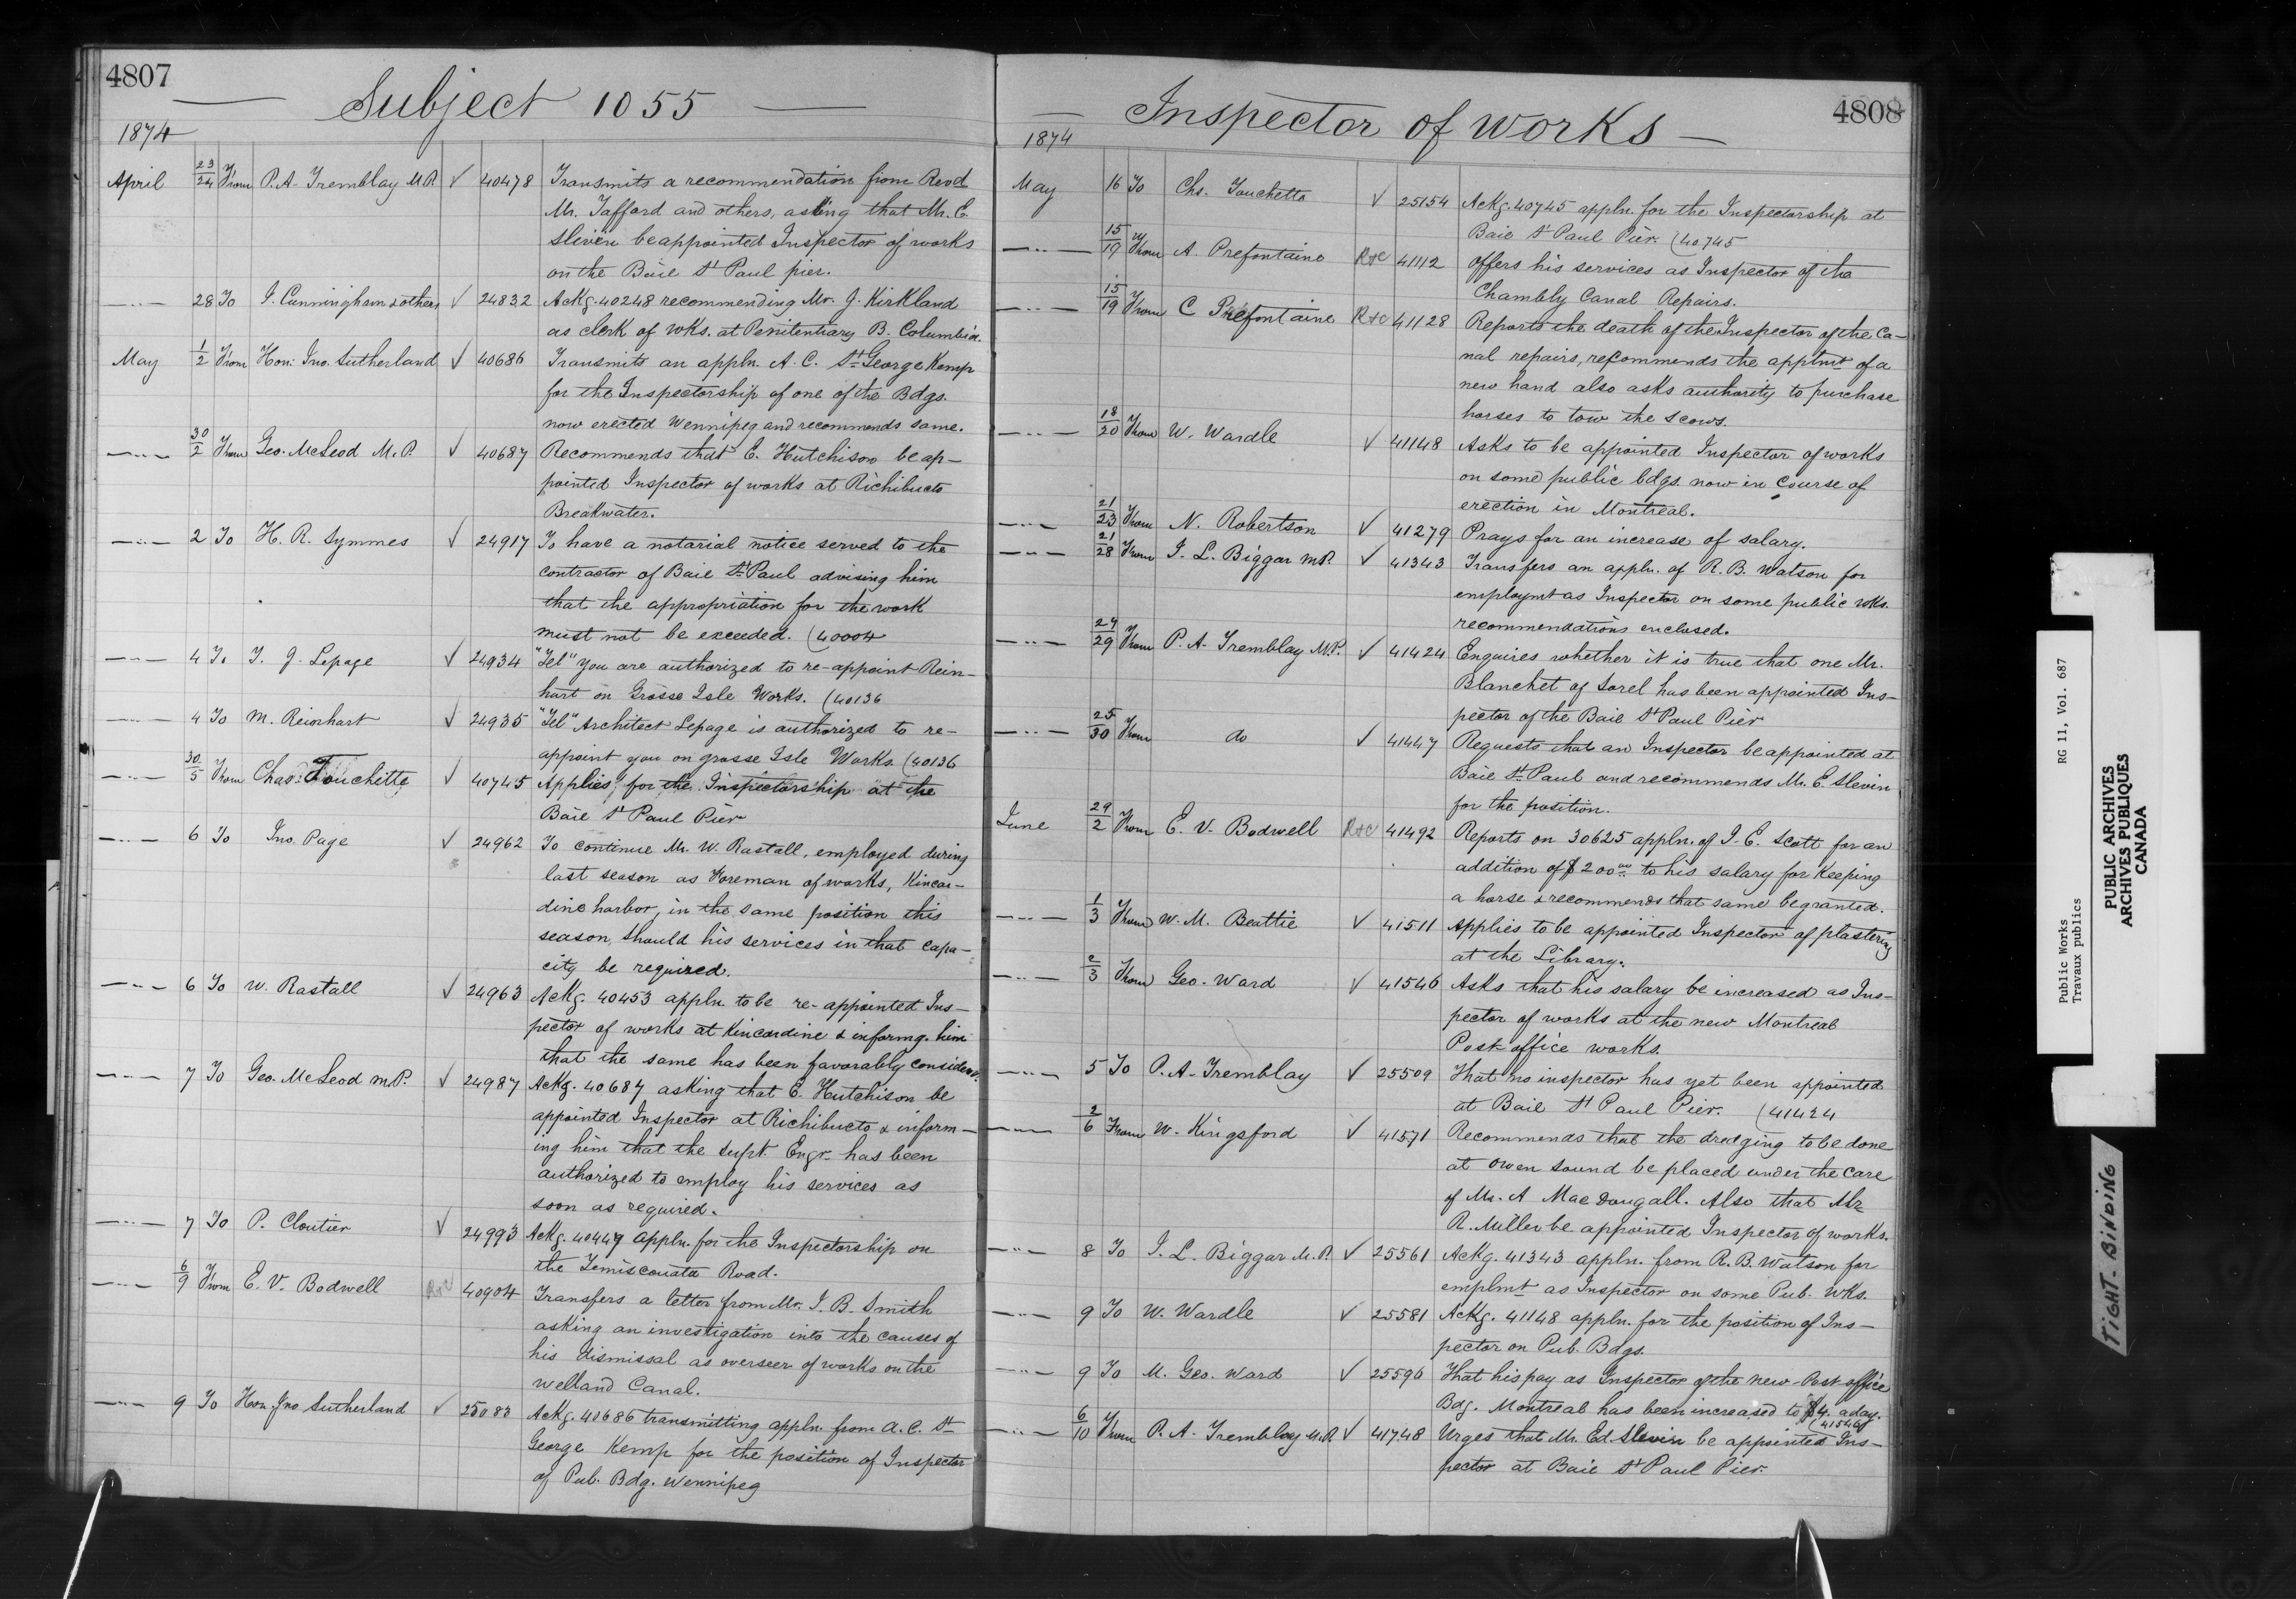 4807
Subject 1055
1874
April 23/24 From P. A. Tremblay M.P. √ 40478 Transmits a recommendation from Revd
Mr. Tafford and others, asking that Mr. E.
Slevin be appointed Inspector of works
on the Baie St Paul pier.
—"— 28 To J. Cunningham & others √ 24832 Ackg. 40248 recommending Mr. J. Kirkland
as clerk of wks. at Penitentiary B. Columbia.
May 1/2 From Hon: Jno. Sutherland √ 40686 Transmits an appln. A. C. St George Kemp
for the Inspectorship of one of the Bdgs.
now erected Wennipeg and recommends same.
—"— 30/2 From Geo. McLeod M.P. √ 40687 Recommends that E. Hutchison be ap-
pointed Inspector of works at Richibucto
Breakwater.
—"— 2 To H. R. Symmes √ 24917 To have a notarial notice served to the
contractor of Baie St Paul advising him
that the appropriation for the work
must not be exceeded. (40004
—"— 4 To T. J. Lepage √ 24934 "Tel" you are authorized to re-appoint Rein-
hart on Grosse Isle Works. (40136
—"— 4 To M. Reinhart √ 24935 "Tel" Architect Lepage is authorized to re-
appoint you on grosse Isle Works (40136
—"— 30/5 From Chas. Touchette √ 40745 Applies for the Inspectorship at the
Baie St Paul Pier
—"— 6 To Jno. Page √ 24962 To continue Mr. W. Rastall, employed during
last season as Foreman of works, Kincar-
dine harbor, in the same position this
season, should his services in that capa-
city be required.
—"— 6 To W. Rastall √ 24963 Ackg. 40453 appln. to be re-appointed Ins-
pector of works at Kincardine & informg. him
that the same has been favorably considered.
—"— 7 To Geo. McLeod M.P. √ 24987 Ackg. 40687 asking that E. Hutchison be
appointed Inspector at Richibucto & inform-
ing him that the supt. Engr. has been
authorized to employ his services as
soon as required.
—"— 7 To P. Cloutier √ 24993 Ackg. 40449 appln. for the Inspectorship on
the Temiscouata Road.
—"— 6/9 From E. V. Bodwell R&C 40904 Transfers a letter from Mr. J. B. Smith
asking an investigation into the causes of
his dismissal as overseer of works on the
Welland Canal.
—"— 9 To Hon. Jno Sutherland √ 25083 Ackg. 40686 transmitting appln. from A. C. St
George Kemp for the position of Inspector
of Pub. Bdg. Wennipeg
4808
Inspector of works
1874
May 16 To Chs. Touchette √ 25154 Ackg. 40745 appln. for the Inspectorship at
Baie St Paul Pier. (40745
—"— 15/19 From A. Prefontaine R&C 41112 Offers his services as Inspector of the
Chambly Canal Repairs.
—"— 15/19 From C Préfontaine R&C 41128 Reports the death of the Inspector of the Ca-
nal repairs, recommends the apptmt of a
new hand also asks authority to purchase
horses to tow the scows.
—"— 18/20 From W. Wardle √ 41148 Asks to be appointed Inspector of works
on some public bdgs. now in course of
erection in Montreal.
—"— 21/23 From N. Robertson √ 41279 Prays for an increase of salary.
—"— 21/28 From J. L. Biggar MP. √ 41343 Transfers an appln. of R. B. Watson for
employmt as Inspector on some public wks.
recommendations enclosed.
—"— 24/29 From P. A. Tremblay M.P. √ 41424 Enquires whether it is true that one Mr.
Blanchet of Sorel has been appointed Ins-
pector of the Baie St Paul Pier
—"— 25/30 From do √ 41447 Requests that an Inspector be appointed at
Baie St Paul and recommends Mr. E. Slevin
for the position.
June 29/2 From E. V. Bodwell R&C 41492 Reports on 30625 appln. of J. E. Scott for an
addition of $200 00 to his salary for keeping
a horse & recommends that same be granted.
—"— 1/3 From W. M. Beattie √ 41511 Applies to be appointed Inspector of plastering
at the Library.
—"— 2/3 From Geo. Ward √ 41546 Asks that his salary be increased as Ins-
pector of works at the new Montreal
Post office works.
—"— 5 To P. A. Tremblay √ 25509 That no inspector has yet been appointed
at Baie St Paul Pier. (41424
—"— 2/6 From W. Kingsford √ 41571 Recommends that the dredging to be done
at Owen Sound be placed under the care
of Mr. A MacDougall. Also that Mr
R. Miller be appointed Inspector of works.
—"— 8 To J. L. Biggar M.P. √ 25561 Ackg. 41343 appln. from R. B. Watson for
emplmt as Inspector on some Pub. wks.
—"— 9 To W. Wardle √ 25581 Ackg. 41148 appln. for the position of Ins-
pector on Pub. Bdgs.
—"— 9 To M. Geo. Ward √ 25596 That his pay as Inspector of the new Post office
Bdg. Montreal has been increased to $4. a day.
(41546
—"— 6/10 From P. A. Tremblay M.P. √ 41748 Urges that Mr. Ed. Slevin be appointed Ins-
pector at Baie St Paul Pier.
Public Works RG 11, Vol. 687
Travaux publics
PUBLIC ARCHIVES
ARCHIVES PUBLIQUES
CANADA
TIGHT-BINDING